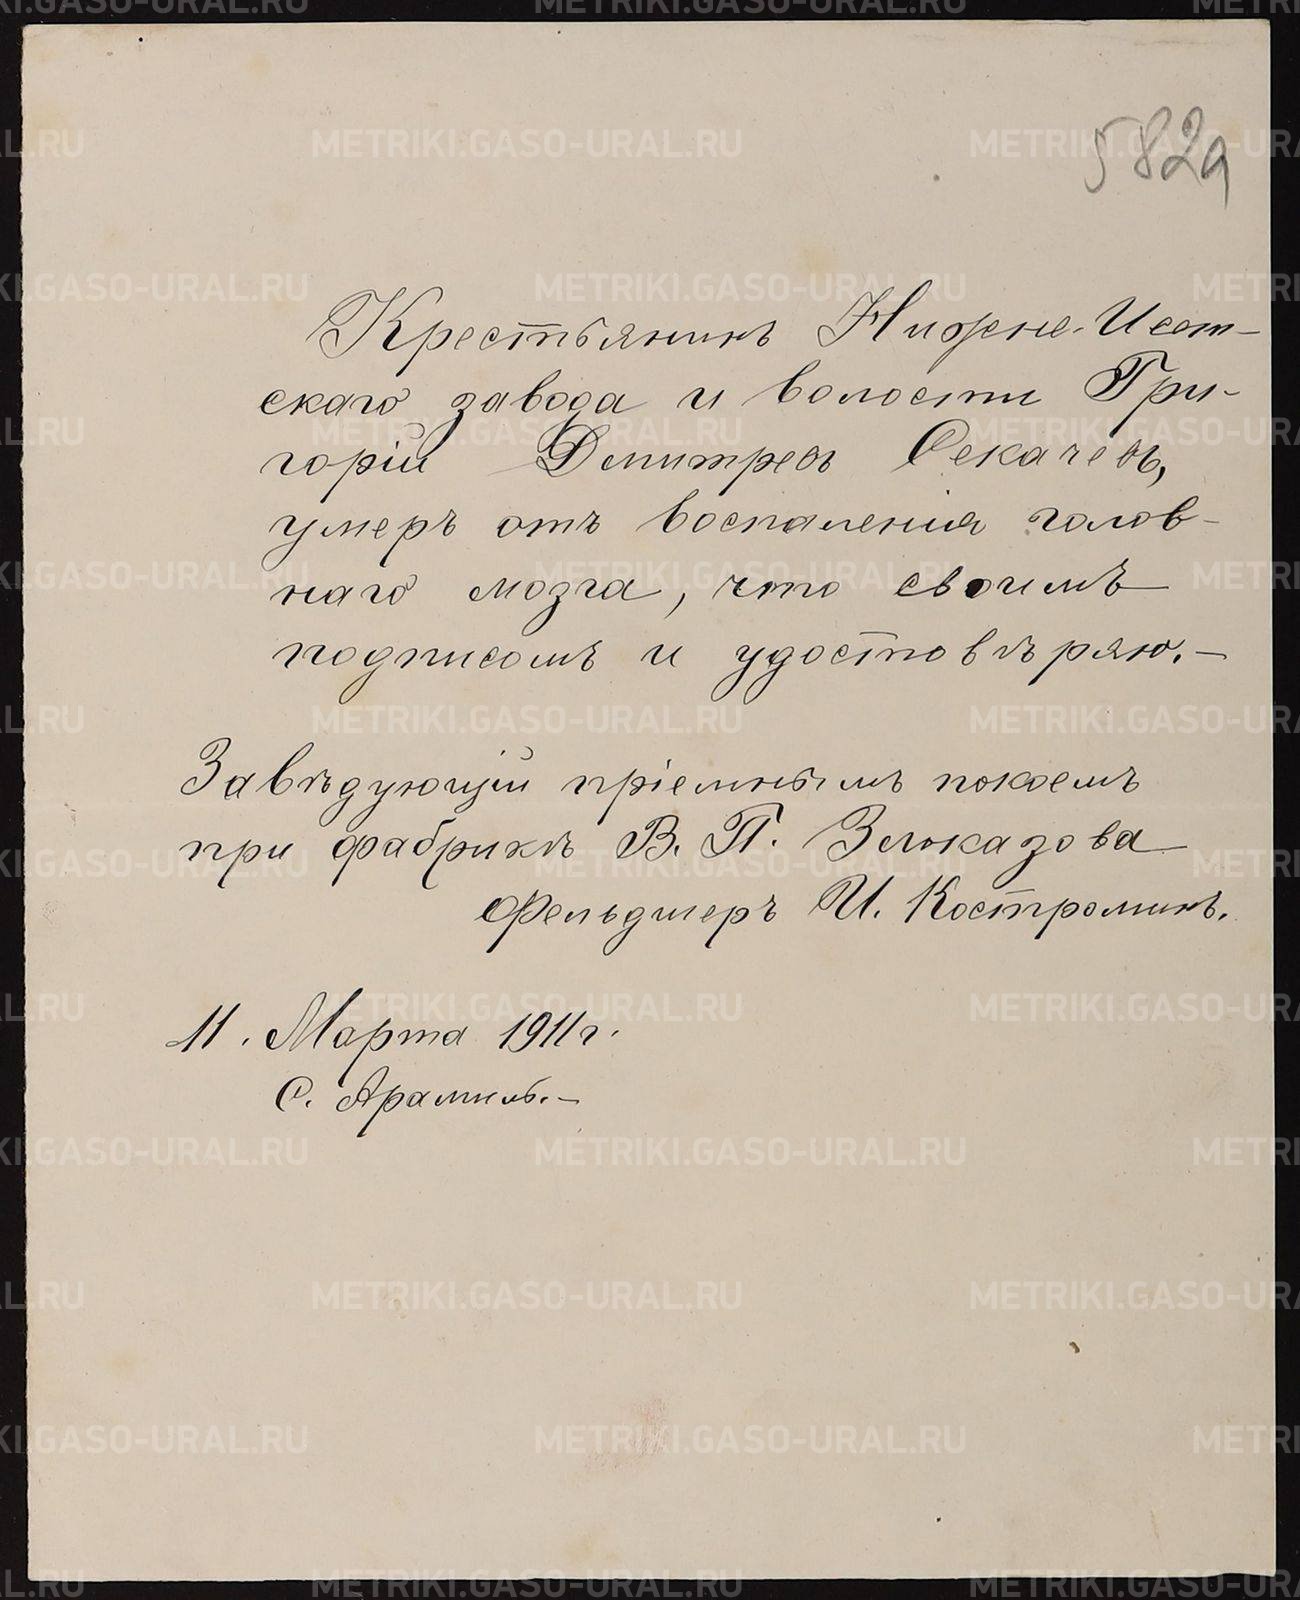 582а
Крестьянинъ Нижне-Исет-
скаго завода и волости Гри-
горій Дмитревъ Секачевъ,
умеръ отъ воспаленія голов-
наго мозга, что своимъ
подписомъ и удостовѣряю.—
Завѣдующій пріемнымъ покоемъ
при фабрикѣ В. П. Злоказова
Фельдшеръ И. Костроминъ.
11. Марта 1911 г.
С. Арамиль.—
METRIKI.GASO-URAL.RU